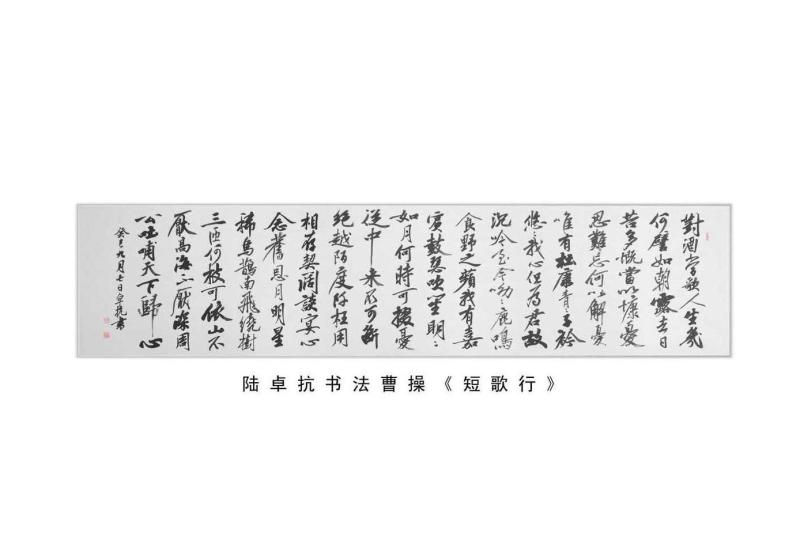 對酒當歌人生幾
何譬如朝露去日
苦多慨當以慷憂
思難忘何以解憂
唯有杜康青々子衿
悠々我心但為君故
沉吟至今呦々鹿鳴
食野之蘋我有嘉
賓鼓瑟吹笙明々
如月何時可掇憂
從中來不可斷
絕越陌度阡枉用
相存契闊談宴心
念舊恩月明星
稀烏鵲南飛繞樹
三匝何枝可依山不
厭高海不厭深周
公吐哺天下歸心
癸巳九月七日卓抗書
陆卓抗书法曹操《短歌行》